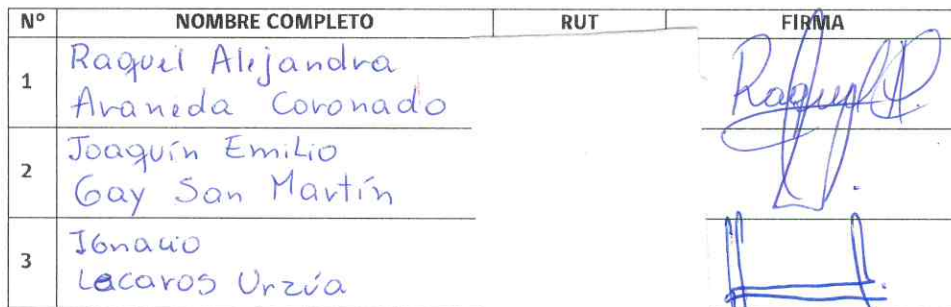 Nº NOMBRE COMPLETO RUT FIRMA
1 Raquel Alejandra
Araneda Coronado
2 Joaquín Emilio
Gay San Martín
3 IGnacio
Lecaros Urzúa